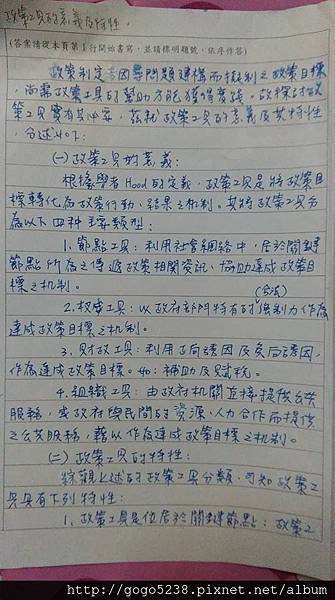 政策工具的意義及特性。
(答案請從本頁第1行開始書寫，並請標明題號，依序作答)
政策制定者因應問題建構而擬制之政策目標
，尚需政策工具的幫助方能獲得實踐，故探討政
策工具實有其必要，茲就政策工具的意義及其特性
，分述如下：
(一)政策工具的意義：
根據學者Hood的定義，政策工具是將政策目
標轉化為政策行動、結果之機制。其將政策工具分
為以下四種主要類型：
1.節點工具：利用社會網絡中，居於關鍵
節點所為之傳遞政策相關資訊，協助達成政策目
標之機制。
(合法)
2.權威工具：以政府部門特有的強制力作為
達成政策目標之機制。
3.財政工具：利用正向誘因及負向誘因，
作為達成政策目標。如：補助及賦稅。
4.組織工具：由政府機關直接提供公共
服務，或政府與民間的資源、人力合作而提供
之公共服務，藉以作為達成政策目標之機制。
(二)政策工具的特性：
綜觀上述的政策工具分類，可知政策工
具具有下列特性：
1.政策工具是位居於關鍵節點：政策工
http://gogo5238.pixnet.net/album